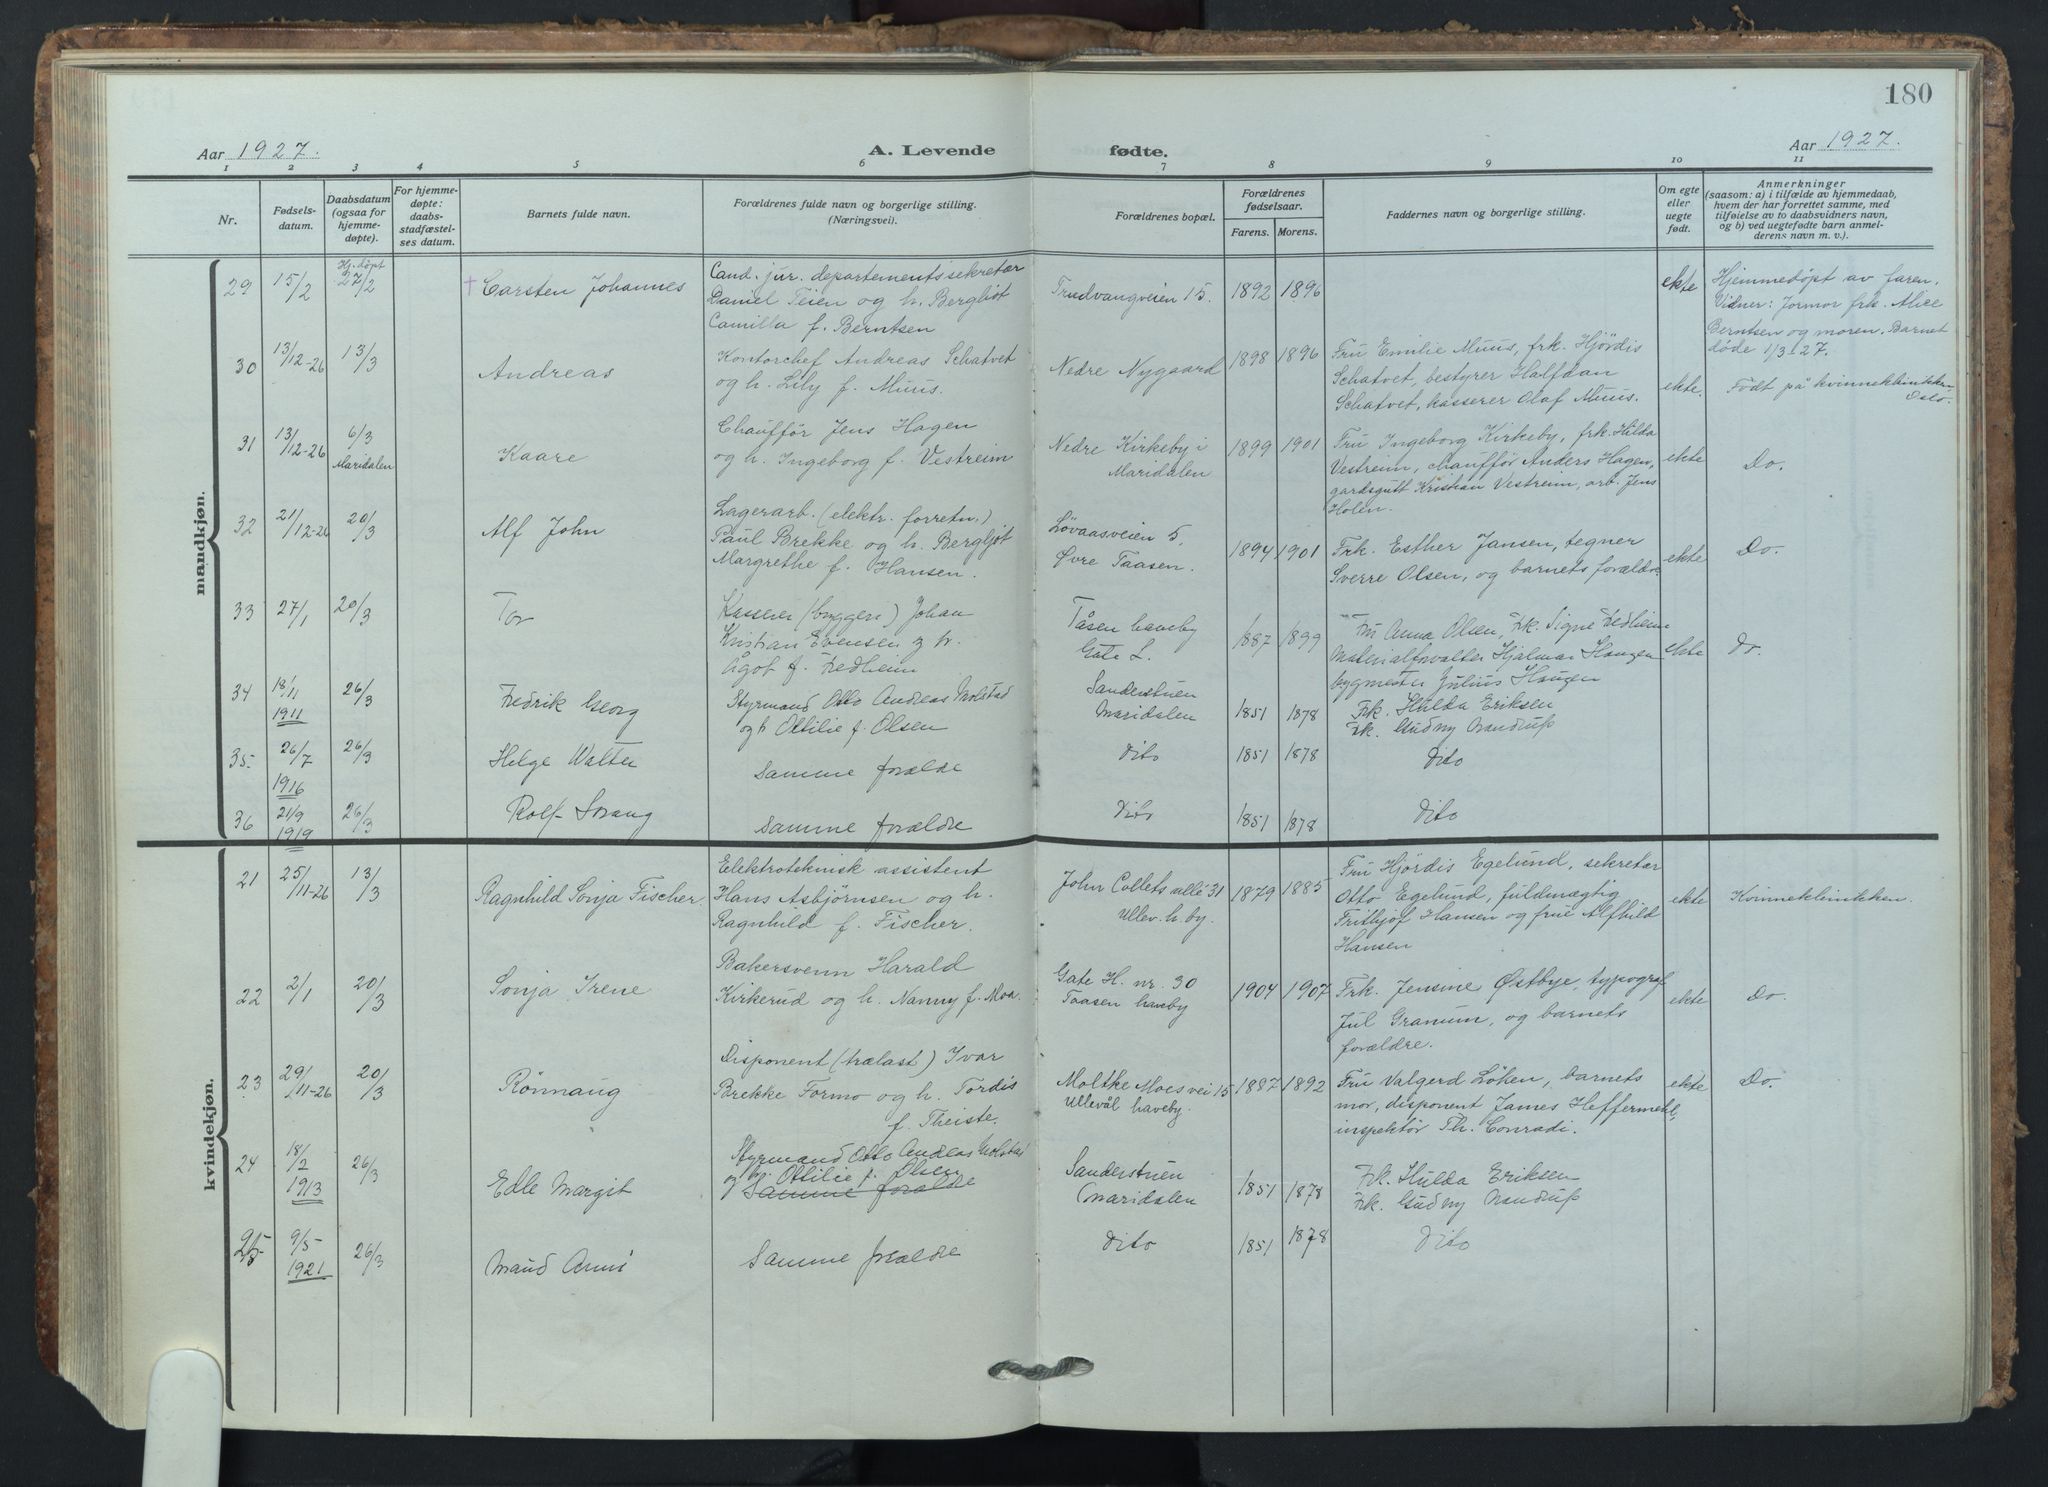 180
Aar 1927.
A. Levende fødte.
Aar 1927.
1 2 3 4 5 6 7 8 9 10 11
Nr.
Fødsels-
datum.
Daabsdatum
(ogsaa for
hjemme-
døpte).
For hjemme-
døpte:
daabs-
stadfæstel-
ses datum.
Barnets fulde navn.
Forældrenes fulde navn og borgerlige stilling.
(Næringsvei).
Forældrenes bopæl.
Forældrenes
fødselsaar.
Farens. Morens.
Faddernes navn og borgerlige stilling.
Om egte
eller
uegte
født.
Anmerkninger
(saasom: a) i tilfælde av hjemmedaab,
hvem der har forrettet samme, med
tilføielse av to daabsvidners navn,
og b) ved uegtefødte barn anmel-
derens navn m. v.).
mandkjøn.
29
15/2
Hj. døpt
27/2
† Carsten Johannes
Cand. jur. departementssekretær
Daniel Teien og h. Bergljot
Camilla f. Berntsen
Trudvangveien 15.
1892 1896
ekte
Hjemmedøpt av faren.
Vidner: Jormor frk. Alice
Berntsen og moren. Barnet
døde 1/3-27.
30
13/12-26
13/3
Andreas
Kontorchef Andreas Schatvet
og h. Lily f. Muus.
Nedre Nygaard
1898 1896
Fru Emilie Muus, frk. Hjördis
Schatvet, bestyrer Halfdan
Schatvet, kasserer Olaf Muus.
ekte.
Født på kvinneklinikken,
Oslo.
31
13/12-26
6/3
Maridalen
Kaare
Chaufför Jens Hagen
og h. Ingeborg f. Vestreim
Nedre Kirkeby i
Maridalen
1899 1901
Fru Ingeborg Kirkeby, frk. Hilda
Vestreim, chaufför Anders Hagen,
gardsgutt Kristian Vestreim, arb. Jens
Holen.
ekte
Do.
32
21/12-26
20/3
Alf John
Lagerarb. (elektr. forretn.)
Paul Brekke og h. Bergljot
Margrethe f. Hansen.
Løvaasveien 5.
Øvre Taasen.
1894 1901
Frk. Esther Jansen, tegner
Sverre Olsen, og barnets forældre
ekte
Do.
33
27/1
20/3
Tor
Kasserer (bryggeri) Johan
Kristian Evensen og h.
Ågot f. Fredheim
Tåsen haveby
Gate L.
1887 1899
Fru Anna Olsen, Frk. Signe Fredheim
Materialforvalter Hjalmar Haugen
bygmester Julius Haugen
ekte
Do.
34
18/11
1911
26/3
Fredrik Georg
Styrmand Otto Andreas Molstad
og h Ottilie f. Olsen
Sanderstuen
Maridalen
1851 1878
Frk. Hulda Eriksen
Frk. Gudny Brandrup
35
26/7
1916
26/3
Helge Walter
Samme forælde
Dito
1851 1878
Dito
36
21/9
1919
26/3
Rolf
Samme forældre
Dito
1851 1878
Dito
kvindekjøn.
21
25/11-26
13/3
Ragnhild Sonja Fischer.
Elektroteknisk assistent
Hans Asbjørnsen og h.
Ragnhild f. Fischer.
John Collets allé 31
Ullev. h. by.
1879 1885
Fru Hjördis Egelund, sekretær
Otto Egelund, fuldmægtig
Fritbjof Hansen og frue Alfhild
Hansen
ekte
Kvinneklinikken.
22
2/1
20/3
Sonja Irene
Bakersvenn Harald
Kirkerud og h. Nanny f. Moa.
Gate H. nr. 30
Taasen haveby
1904 1907
Frk. Jensine Østbye, typograf
Jul Granum, og barnets
forældre.
ekte
Do.
23
29/11-26
20/3
Rönnaug
Disponent (trælast) Ivar
Brekke Formo og h. Tordis
f. Theiste.
Moltke Moes vei 15
Ullevål haveby.
1887 1892
Fru Valgerd Löken, barnets
mor, disponent James Heffermehl,
inspektør Th. Conradi.
ekte
Do.
24
18/2
1913
26/3
Edle Margit
Styrmand Otto Andreas Molstad
og h. Ottilie f. Olsen
Samme forældre
Sanderstuen
Maridalen
1851 1878
Frk. Hulda Eriksen
Frk. Gudny Brandrup
25
9/5
1921
26/3
Maud Anni
Samme forældre
Dito
1851 1878
Dito